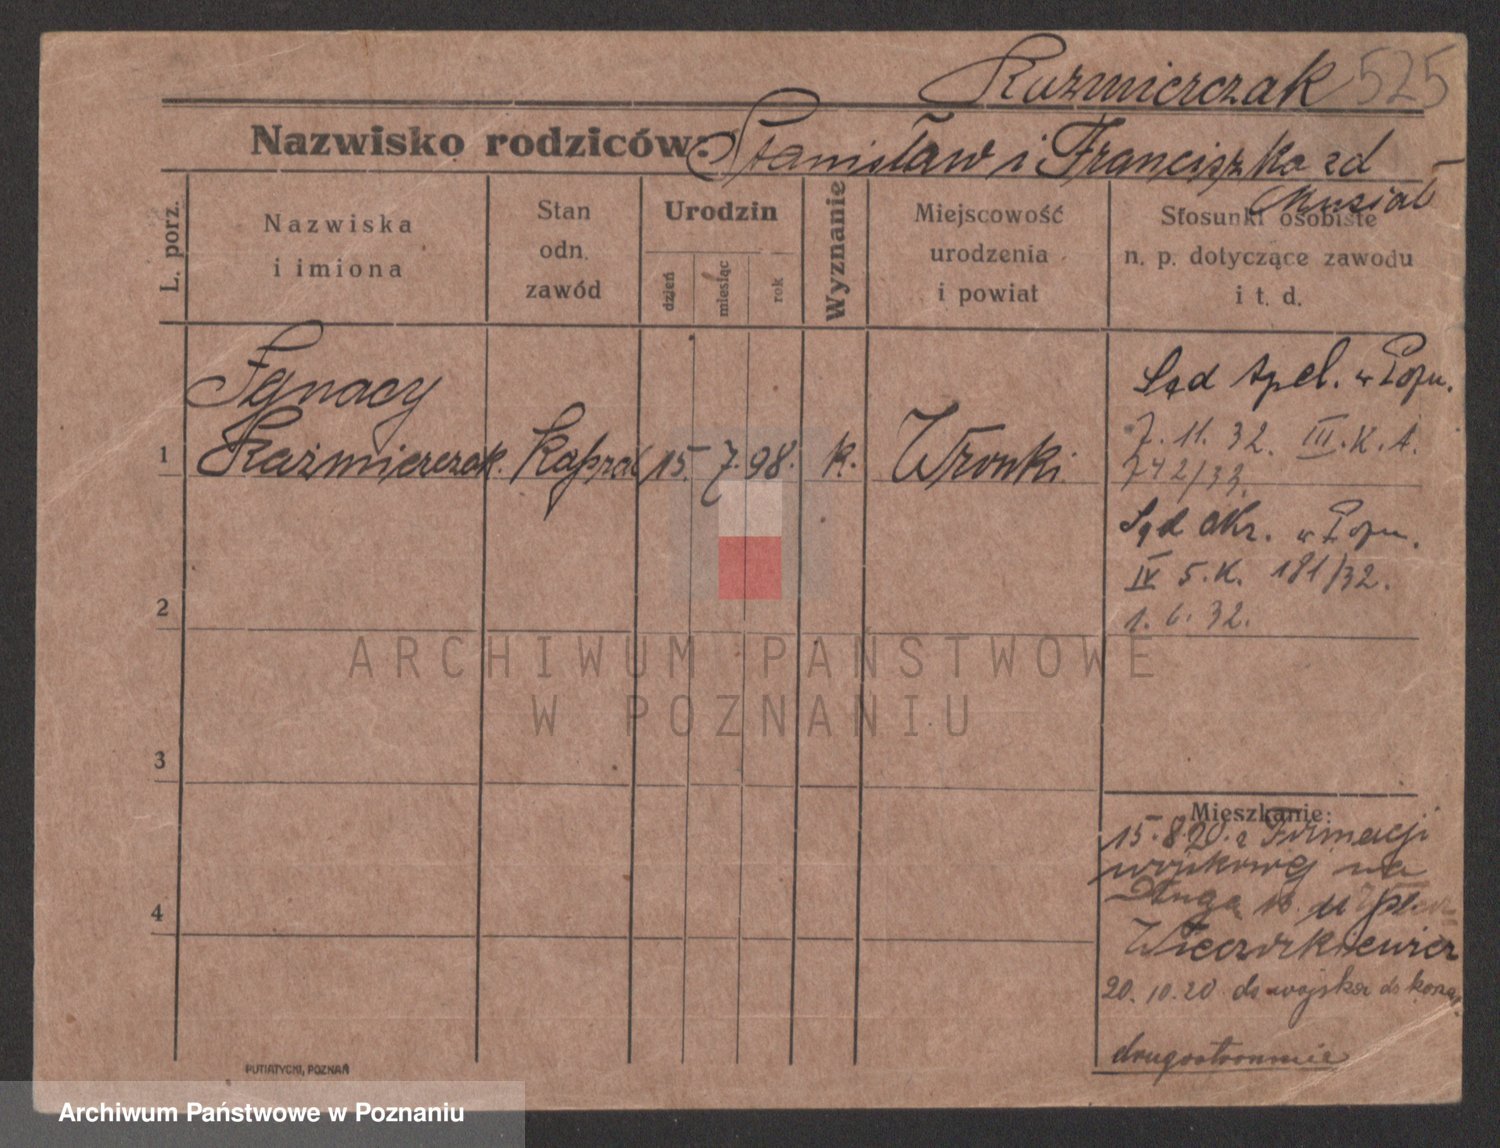 Kaźmierczak 525
Nazwisko rodziców: Stanisław i Franciszka zd
Musiał
L. porz.
Nazwiska
i imiona
Stan
odn.
zawód
Urodzin
dzień
miesiąc
rok
Wyznanie
Miejscowość
urodzenia
i powiat
Stosunki osobiste
n. p. dotyczące zawodu
i t. d.
Ignacy
1 Kaźmierczak. Kapral 15. 7. 98. k. Wronki.
Sąd Apel. w Pozn.
7. 11. 32. III. K. A.
742/33.
Sąd Okr. w Pozn.
IV 5. K. 181/32.
1. 6. 32.
2
3
4
Mieszkanie:
15.8.20. z Formacji
na
Długą 13. u
Wieczorkiewicz
20. 10. 20 do wojska do koszar.
drugostronnie
PUTIATYCKI, POZNAŃ
ARCHIWUM PAŃSTWOWE
W POZNANIU
Archiwum Państwowe w Poznaniu